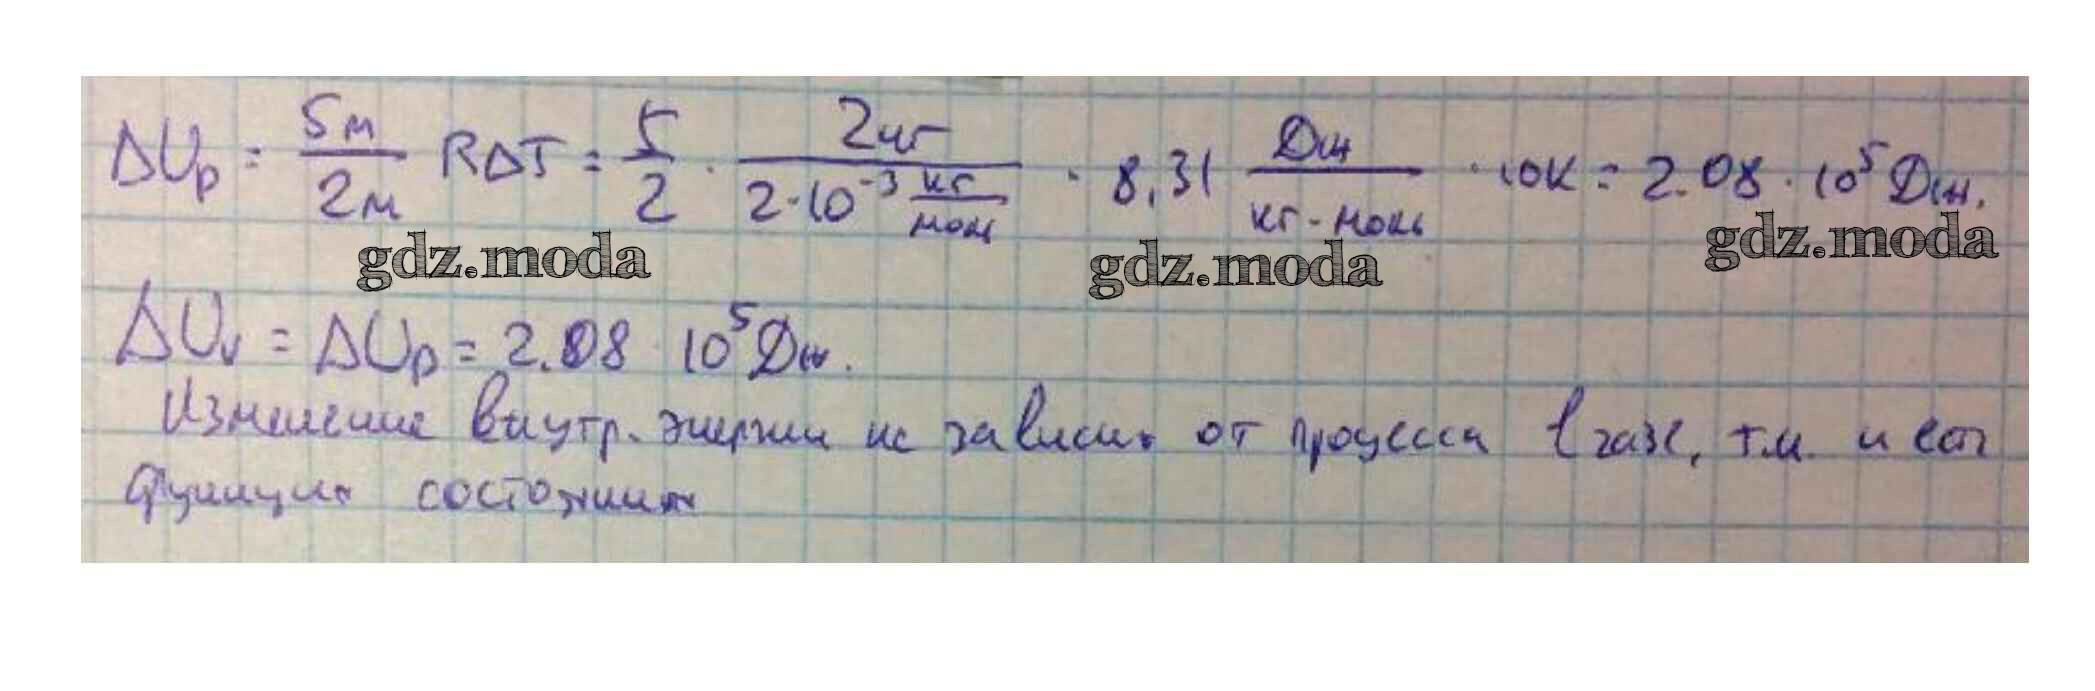 ΔUp = 5м/2м RΔT = 5/2 · 2кг/(2·10⁻³ кг/моль) · 8,31 Дж/(кг-моль) · 10К = 2.08 · 10⁵ Дж.
gdz.moda gdz.moda gdz.moda
ΔUv = ΔUp = 2.08 10⁵ Дж.
Изменение внутр. энергии не зависит от процесса в газе, т.к. и есть
функция состояния